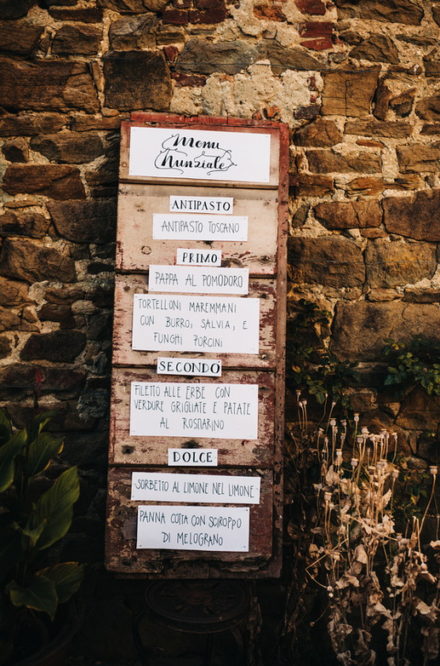 Menu
Nunziale
ANTIPASTO
ANTIPASTO TOSCANO
PRIMO
PAPPA AL POMODORO
TORTELLONI MAREMMANI
CON BURRO, SALVIA, E
FUNGHI PORCINI
SECONDO
FILETTO ALLE ERBE CON
VERDURE GRIGLIATE E PATATE
AL ROSMARINO
DOLCE
SORBETTO AL LIMONE NEL LIMONE
PANNA COTTA CON SCIROPPO
DI MELOGRANO